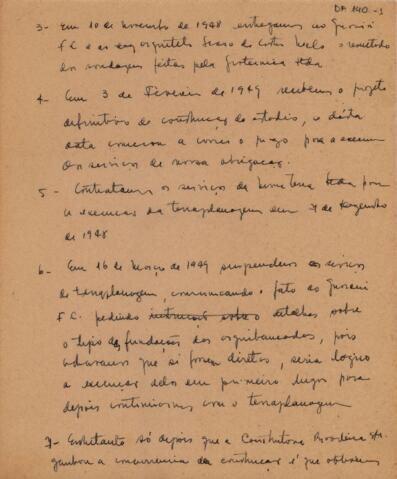 DA 140-3
3- Em 10 de novembro de 1948 entregamos ao Guarani
F.C e ao engº arquiteto Icaro de Castro Mello o resultado
das sondagens feitas pela Geotecnica Ltda
4- Em 3 de Fevereiro de 1949 recebemos o projeto
definitivo de construção do estadio, e desta
data começou a correr o prazo para a execução
dos serviços de nossa obrigação.
5- Contratamos os serviços da terra Ltda para
a execução da terraplanagem em 7 de Dezembro
de 1948
6- Em 16 de março de 1949 suspendemos os serviços
de terraplanagem, comunicando o fato ao Guarani
F.C. pedindo instruções sobre detalhes sobre
o tipo das fundações das arquibancadas, pois
achavamos que si fossem diretas, seria logico
a execução delas em primeiro lugar para
depois continuarmos com o terraplanagem
7- Entretanto só depois que a Construtora Brasileira
ganhou a concorrencia da construção é que obtivemos